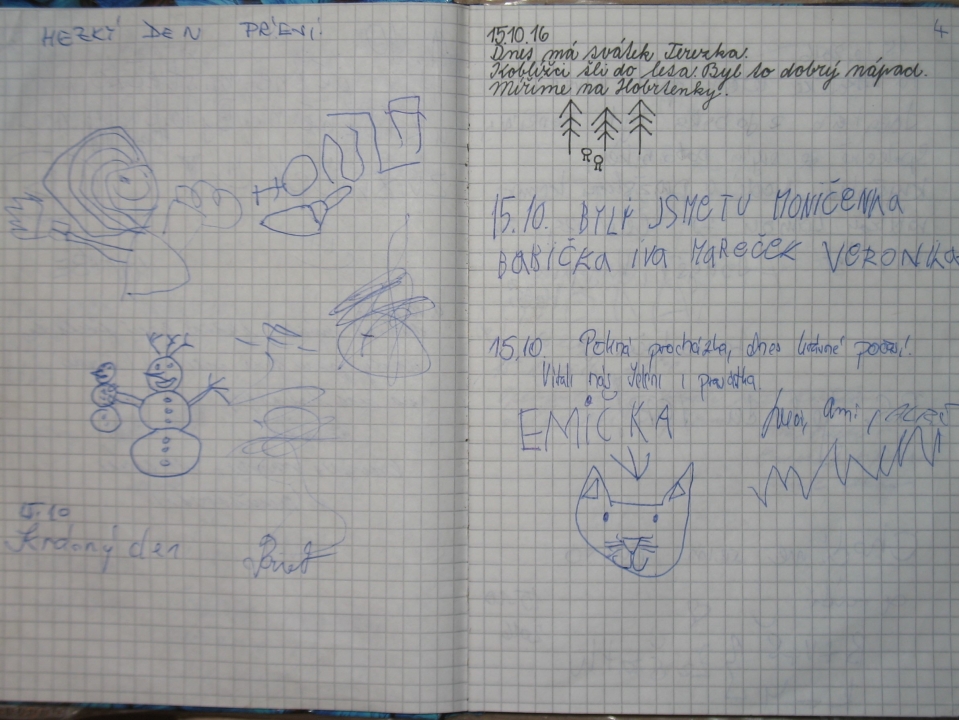 HEZKÝ DEN PŘEJI!
15.10
Krásný den
4
15.10.16
Dnes má svátek Terezka.
Koblížci šli do lesa. Byl to dobrý nápad.
Míříme na Hobrtenky.
15.10. BYLI JSME TU MONIČENKA
BABIČKA IVA MAREČEK VERONIKA
15.10. Pěkná procházka, dnes krásné počasí!
Vítali nás i
EMIČKA